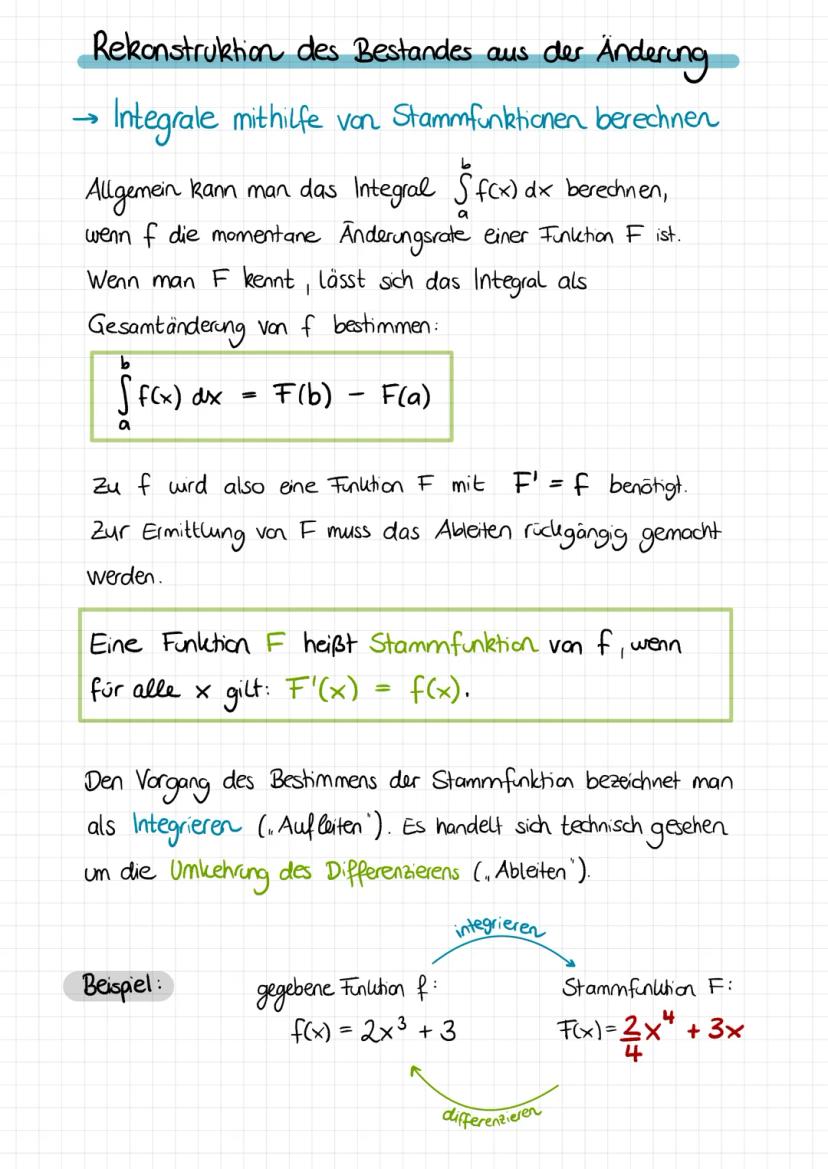 Rekonstruktion des Bestandes aus der Änderung
→ Integrale mithilfe von Stammfunktionen berechnen
Allgemein kann man das Integral ∫ₐᵇ f(x) dx berechnen,
wenn f die momentane Änderungsrate einer Funktion F ist.
Wenn man F kennt, lässt sich das Integral als
Gesamtänderung von f bestimmen:
∫ₐᵇ f(x) dx = F(b) - F(a)
Zu f wird also eine Funktion F mit F' = f benötigt.
Zur Ermittlung von F muss das Ableiten rückgängig gemacht
werden.
Eine Funktion F heißt Stammfunktion von f, wenn
für alle x gilt: F'(x) = f(x).
Den Vorgang des Bestimmens der Stammfunktion bezeichnet man
als Integrieren („Aufleiten"). Es handelt sich technisch gesehen
um die Umkehrung des Differenzierens („Ableiten").
integrieren
Beispiel: gegebene Funktion f: Stammfunktion F:
f(x) = 2x³ + 3 F(x) = 2/4 x⁴ + 3x
differenzieren